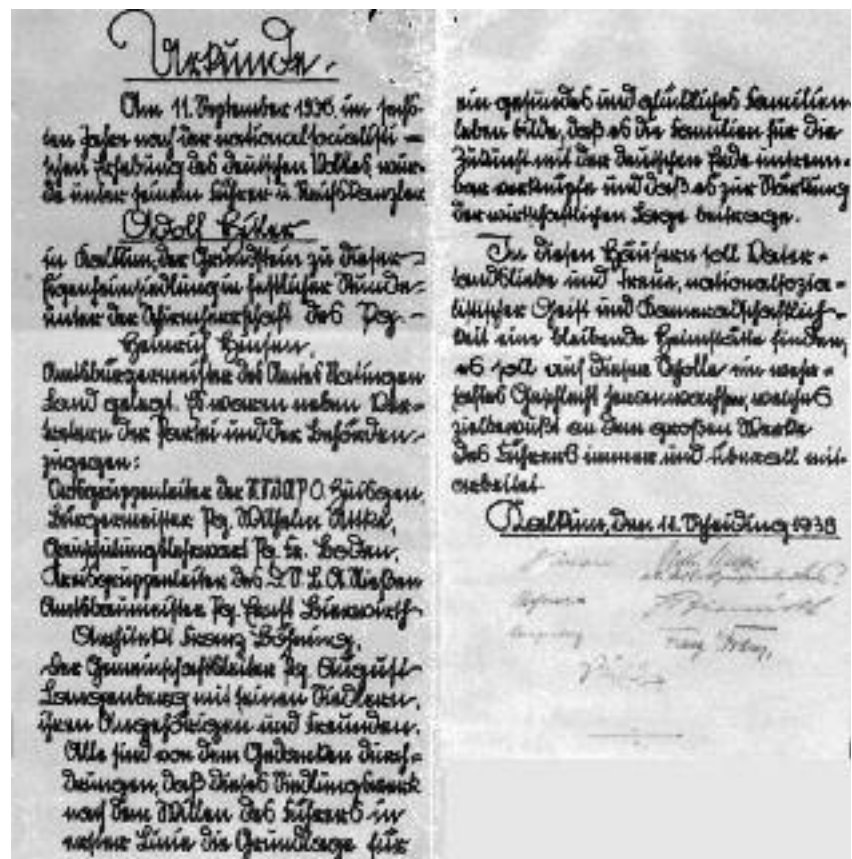 Urkunde.
Am 11. September 1938. im sechs-
ten Jahre nach der nationalsocialisti-
schen Erhebung des deutschen Volkes, wur-
de unter seinem Führer u. Reichskanzler
Adolf Hitler
in Kalkum, der Grundstein zu dieser
Eigenheimsiedlung in festlicher Stunde
unter der Schirmherrschaft des Pg.
Heinrich Hensen,
Amtsbürgermeister des Amtes Ratingen
Land gelegt. Es waren neben Ver-
tretern der Partei und der Behörden
zugegen:
Ortsgruppenleiter der N.S.D.A.P. O.
Bürgermeister Pg. Wilhelm
Pg. Fr. Boden,
Kreisgruppenleiter des Nießen
Amtsbaumeister Pg. Ernst Bierwirth
Architekt Franz Böhning,
der Gemeinschaftsleiter Pg. August
Langenberg mit seinen Siedlern,
ihren Angehörigen und Freunden.
Alle sind von dem Gedanken durch-
drungen, daß dieses Siedlungswerk
nach dem Willen des Führers in
erster Linie die Grundlage für
ein gesundes und glückliches Familien-
leben bilde, daß es die Familien für die
Zukunft mit der deutschen Erde untrenn-
bar verknüpfe und daß es zur Stärkung
der wirtschaftlichen Lage beitrage.
In diesen Häusern soll Vater-
landsliebe und Treue, nationalsozia-
listischer Geist und Kameradschaftlich-
keit eine bleibende Heimstätte finden,
es soll auf dieser Scholle ein wehr-
haftes Geschlecht heranwachsen, welches
zielbewußt an dem großen Werke
des Führers immer und überall mit-
arbeitet.
Kalkum, den 11. Scheiding 1938